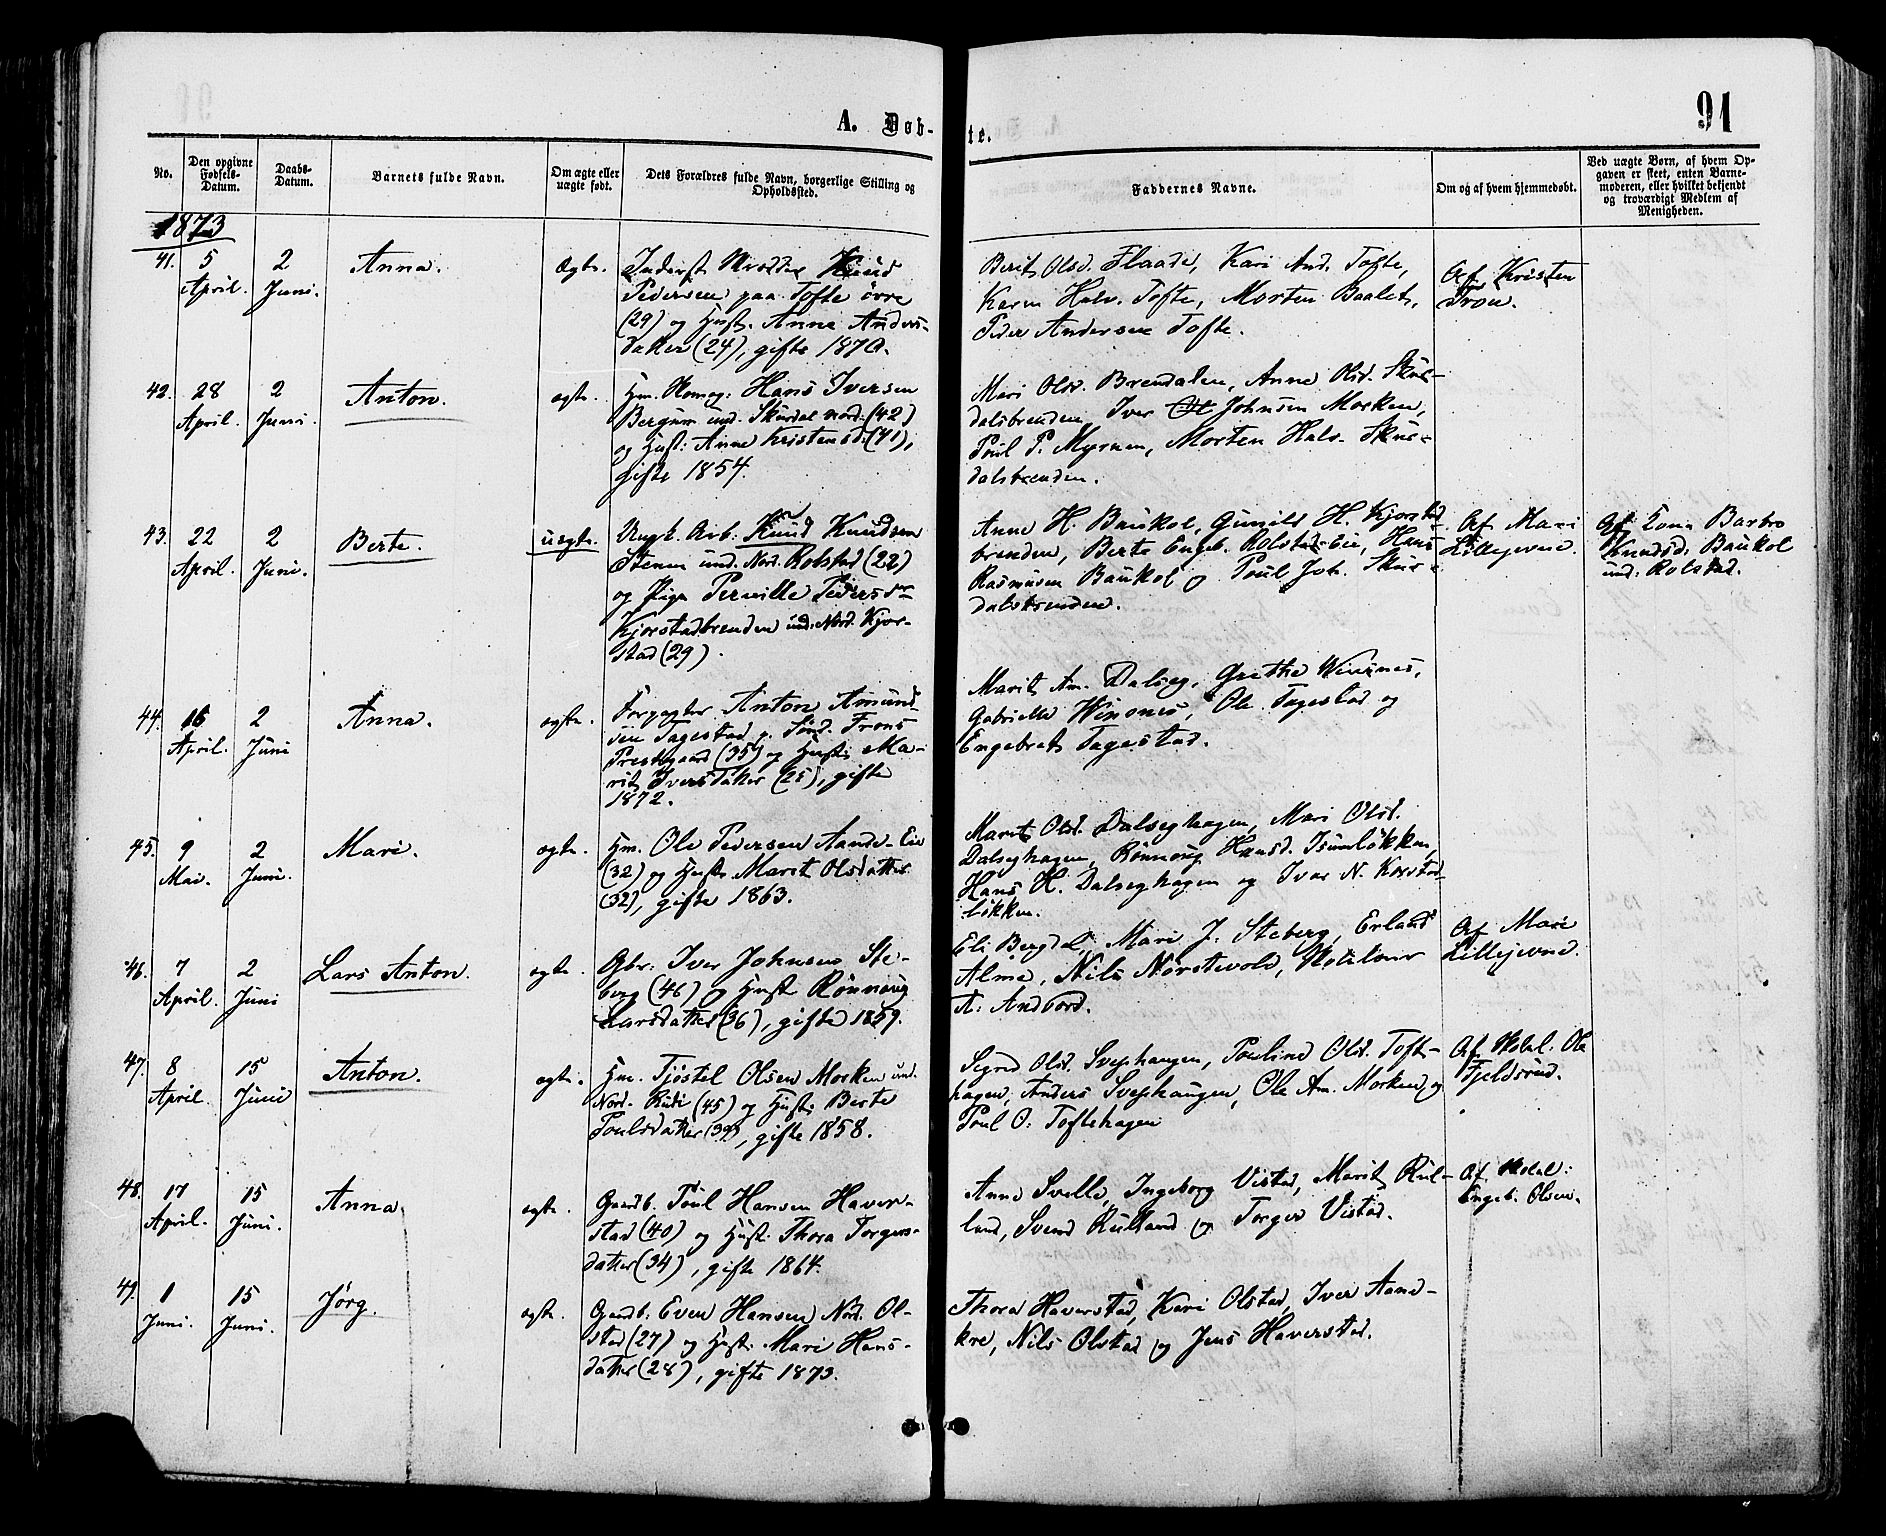 91
A. Døb-te.
No.
Den opgivne Fødsels-Datum.
Daabs-Datum.
Barnets fulde Navn.
Om ægte eller uægte født.
Dets Forældres fulde Navn, borgerlige Stilling og Opholdssted.
Faddernes Navne.
Om og af hvem hjemmedøbt.
Ved uægte Børn, af hvem Opgaven er skeet, enten Barnemoderen, eller hvilket bekjendt og troværdigt Medlem af Menigheden.
1873
41. 5 April. 2 Juni. Anna. Ægte.
Inderst Knud
Pedersen paa Tofte övre
(29) og Hust. Anne Anders-
datter (24), gifte 1870.
Berit Olsd. Flaade, Kari And. Tofte,
Karen Halv. Tofte, Morten Baalet,
Peder Andersen Tofte.
Af Kristen
Tron.
42. 28 April. 2 Juni. Anton. ægte.
Hm. Hans Iversen
Bergum und. Skurdal nord. (42)
og Hust: Anne Kristensd. (41),
gifte 1854.
Mari Olsd. Brendalen, Anne Olsd. Skur-
dalsbrenden, Iver Johnsen Morken,
Poul P. Myrnen, Morten Halv. Skur-
dalsbrenden.
43. 22 April. 2 Juni. Berte. uægte.
Ungk. Arb. Knud Knudsen
Stenen und. Nord. Rolstad (22)
og Pige Pernille Pedersdr
Kjorstadbrenden und. Nord. Kjor-
stad (29).
Anne H. Baukol, Gunild H. Kjorstad-
brenden, Berte Engeb. Rolstad-Eie, Hans
Rasmusen Baukol og Poul Joh. Skur-
dalsbrenden.
Af Mari
Lillejevne.
Af Kona Barbro
Knudsd. Baukol
und. Rolstad.
44. 16 April. 2 Juni Anna. ægte.
Forpagter Anton Amund-
sen Tagestad p. Sönd. Frons
Prestegaard (35) og Hust. Ma-
rit Iversdatter (25), gifte
1872.
Marit Am. Dalseg, Grethe Winsnes,
Gabrielle Winsnes, Ole Tagestad og
Engebret Tagestad.
45. 9 Mai. 2 Juni. Mari. ægte.
Hm. Ole Pedersen Aande-Eie
(32) og Hust. Marit Olsdatter
(32), gifte 1863.
Marit Olsd. Dalseghagen, Mari Olsd.
Dalseghagen, Rönnoug Hansd. Isumlökken,
Hans H. Dalseghagen og Ivar N. Korstad-
lökken.
46. 7 April. 2 Juni Lars Anton. ægte.
Gbr: Iver Johnsen Ste-
berg (46) og Hust. Rönnoug
Larsdatter (36), gifte 1859.
Eli Bergdal, Mari J. Steberg, Erland
Alme, Nils Norstevold,
A. Andvord.
Af Mari
Lillejevne.
47. 8 April. 15 Juni Anton. ægte.
Hm. Tjöstel Olsen Morken und.
Nord. Rudi (45) og Hust. Berte
Poulsdatter (39), gifte 1858.
Sigrid Olsd. Svephaugen, Pouline Olsd. Toft-
hagen, Anders Svephaugen, Ole Am. Morken og
Poul O. Toftehagen
Af Skolel: Ole
Fjeldsrud.
48. 17 April. 15 Juni. Anna. ægte.
Gaardb. Poul Hansen Haver-
stad (40) og Hust. Thora Torgers-
datter (34), gifte 1864.
Anne Svelle, Ingeborg Vistad, Marit Rul-
land, Svend Rulland og Torger Vistad.
Af Skolel:
Engeb. Olsen.
49. 1 Juni. 15 Juni. Jörg. ægte.
Gaardb: Even Hansen Nord. Ol-
stad (27) og Hust. Mari Hans-
datter (28), gifte 1873.
Thora Haverstad, Kari Olstad, Iver Aand-
kre, Nils Olstad og Jens Haverstad.